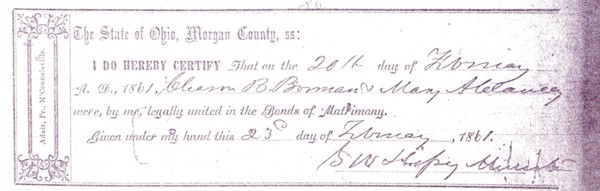 The State of Ohio, Morgan County, ss:
I DO HEREBY CERTIFY That on the 20th day of February
A. D., 1861, B. Borman & Mary
were, by me, legally united in the Bonds of Matrimony.
Given under my hand this 23d day of February, 1861.
S W Minister
Adair, Pr., M'Connelsville.